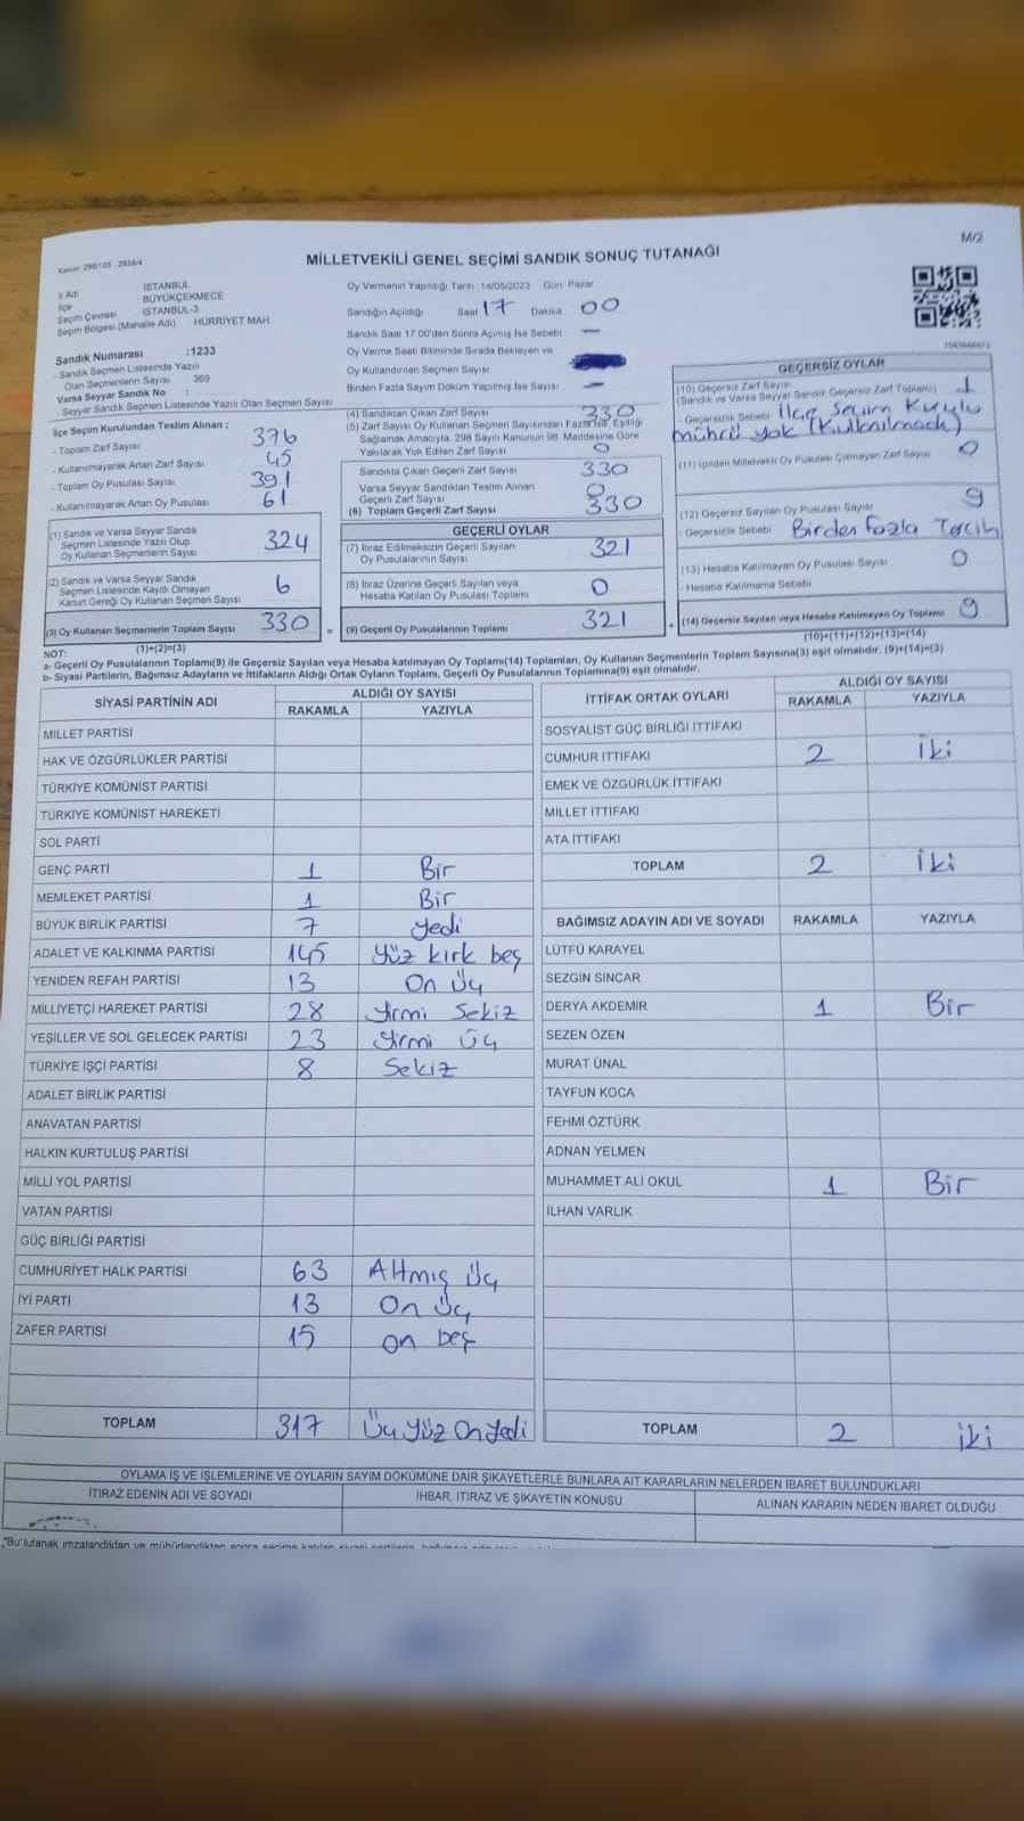 M/2
MİLLETVEKİLİ GENEL SEÇİMİ SANDIK SONUÇ TUTANAĞI
İl Adı İSTANBUL
İlçe BÜYÜKÇEKMECE
Seçim Çevresi İSTANBUL-3
Seçim Bölgesi (Mahalle Adı) HÜRRİYET MAH.
Sandık Numarası :1233
Sandık Seçmen Listesinde Yazılı
Olan Seçmenlerin Sayısı 369
Varsa Seyyar Sandık No :
Seyyar Sandık Seçmen Listesinde Yazılı Olan Seçmen Sayısı
İlçe Seçim Kurulundan Teslim Alınan :
- Toplam Zarf Sayısı 376
- Kullanılmayarak Artan Zarf Sayısı 45
- Toplam Oy Pusulası Sayısı 391
- Kullanılmayarak Artan Oy Pusulası 61
(1) Sandık ve Varsa Seyyar Sandık
Seçmen Listesinde Yazılı Olup
Oy Kullanan Seçmenlerin Sayısı 324
(2) Sandık ve Varsa Seyyar Sandık
Seçmen Listesinde Kayıtlı Olmayan
Kanun Gereği Oy Kullanan Seçmen Sayısı 6
(3) Oy Kullanan Seçmenlerin Toplam Sayısı 330
(1)+(2)=(3)
Oy Vermenin Yapıldığı Tarih : 14/05/2023 Gün: Pazar
Sandığın Açıldığı Saat 17 Dakika 00
Sandık Saat 17.00'den Sonra Açılmış İse Sebebi —
Oy Verme Saati Bitiminde Sırada Bekleyen ve
Oy Kullandırılan Seçmen Sayısı
Birden Fazla Sayım Döküm Yapılmış İse Sayısı —
(4) Sandıktan Çıkan Zarf Sayısı 330
(5) Zarf Sayısı Oy Kullanan Seçmen Sayısından Fazla İse, Eşitliği
Sağlamak Amacıyla, 298 Sayılı Kanunun 98. Maddesine Göre
Yakılarak Yok Edilen Zarf Sayısı 0
Sandıkta Çıkan Geçerli Zarf Sayısı 330
Varsa Seyyar Sandıktan Teslim Alınan
Geçerli Zarf Sayısı 0
(6) Toplam Geçerli Zarf Sayısı 330
GEÇERLİ OYLAR
(7) İtiraz Edilmeksizin Geçerli Sayılan
Oy Pusulalarının Sayısı 321
(8) İtiraz Üzerine Geçerli Sayılan veya
Hesaba Katılan Oy Pusulası Toplamı 0
(9) Geçerli Oy Pusulalarının Toplamı 321
GEÇERSİZ OYLAR
(10) Geçersiz Zarf Sayısı
(Sandık ve Varsa Seyyar Sandık Geçersiz Zarf Toplamı) 1
Geçersizlik Sebebi İlçe Seçim Kurulu
mührü yok (Kullanılmadı)
(11) İçinden Milletvekili Oy Pusulası Çıkmayan Zarf Sayısı 0
(12) Geçersiz Sayılan Oy Pusulası Sayısı 9
Geçersizlik Sebebi Birden fazla Tercih
(13) Hesaba Katılmayan Oy Pusulası Sayısı 0
- Hesaba Katılmama Sebebi
(14) Geçersiz Sayılan veya Hesaba Katılmayan Oy Toplamı 9
(10)+(11)+(12)+(13)=(14)
NOT:
a- Geçerli Oy Pusulalarının Toplamı(9) ile Geçersiz Sayılan veya Hesaba katılmayan Oy Toplamı(14) Toplamları, Oy Kullanan Seçmenlerin Toplam Sayısına(3) eşit olmalıdır. (9)+(14)=(3)
b- Siyasi Partilerin, Bağımsız Adayların ve İttifakların Aldığı Ortak Oyların Toplamı, Geçerli Oy Pusulalarının Toplamına(9) eşit olmalıdır.
SİYASİ PARTİNİN ADI ALDIĞI OY SAYISI
RAKAMLA YAZIYLA
MİLLET PARTİSİ
HAK VE ÖZGÜRLÜKLER PARTİSİ
TÜRKİYE KOMÜNİST PARTİSİ
TÜRKİYE KOMÜNİST HAREKETİ
SOL PARTİ
GENÇ PARTİ 1 Bir
MEMLEKET PARTİSİ 1 Bir
BÜYÜK BİRLİK PARTİSİ 7 Yedi
ADALET VE KALKINMA PARTİSİ 145 Yüz kırk beş
YENİDEN REFAH PARTİSİ 13 On Üç
MİLLİYETÇİ HAREKET PARTİSİ 28 Yirmi Sekiz
YEŞİLLER VE SOL GELECEK PARTİSİ 23 Yirmi Üç
TÜRKİYE İŞÇİ PARTİSİ 8 Sekiz
ADALET BİRLİK PARTİSİ
ANAVATAN PARTİSİ
HALKIN KURTULUŞ PARTİSİ
MİLLİ YOL PARTİSİ
VATAN PARTİSİ
GÜÇ BİRLİĞİ PARTİSİ
CUMHURİYET HALK PARTİSİ 63 Altmış Üç
İYİ PARTİ 13 On Üç
ZAFER PARTİSİ 15 on beş
TOPLAM 317 Üç Yüz On Yedi
İTTİFAK ORTAK OYLARI ALDIĞI OY SAYISI
RAKAMLA YAZIYLA
SOSYALİST GÜÇ BİRLİĞİ İTTİFAKI
CUMHUR İTTİFAKI 2 İki
EMEK VE ÖZGÜRLÜK İTTİFAKI
MİLLET İTTİFAKI
ATA İTTİFAKI
TOPLAM 2 İki
BAĞIMSIZ ADAYIN ADI VE SOYADI RAKAMLA YAZIYLA
LÜTFÜ KARAYEL
SEZGİN SİNCAR
DERYA AKDEMİR 1 Bir
SEZEN ÖZEN
MURAT ÜNAL
TAYFUN KOCA
FEHMİ ÖZTÜRK
ADNAN YELMEN
MUHAMMET ALİ OKUL 1 Bir
İLHAN VARLIK
TOPLAM 2 iki
OYLAMA İŞ VE İŞLEMLERİNE VE OYLARIN SAYIM DÖKÜMÜNE DAİR ŞİKAYETLERLE BUNLARA AİT KARARLARIN NELERDEN İBARET BULUNDUKLARI
İTİRAZ EDENİN ADI VE SOYADI İHBAR, İTİRAZ VE ŞİKAYETİN KONUSU ALINAN KARARIN NEDEN İBARET OLDUĞU